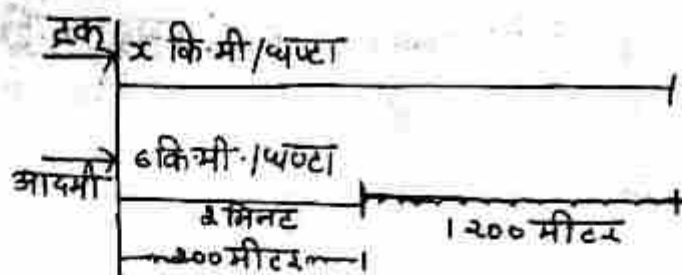 ट्रक
x कि.मी/घण्टा
आदमी
6 कि.मी./घण्टा
2 मिनट
200 मीटर
1200 मीटर